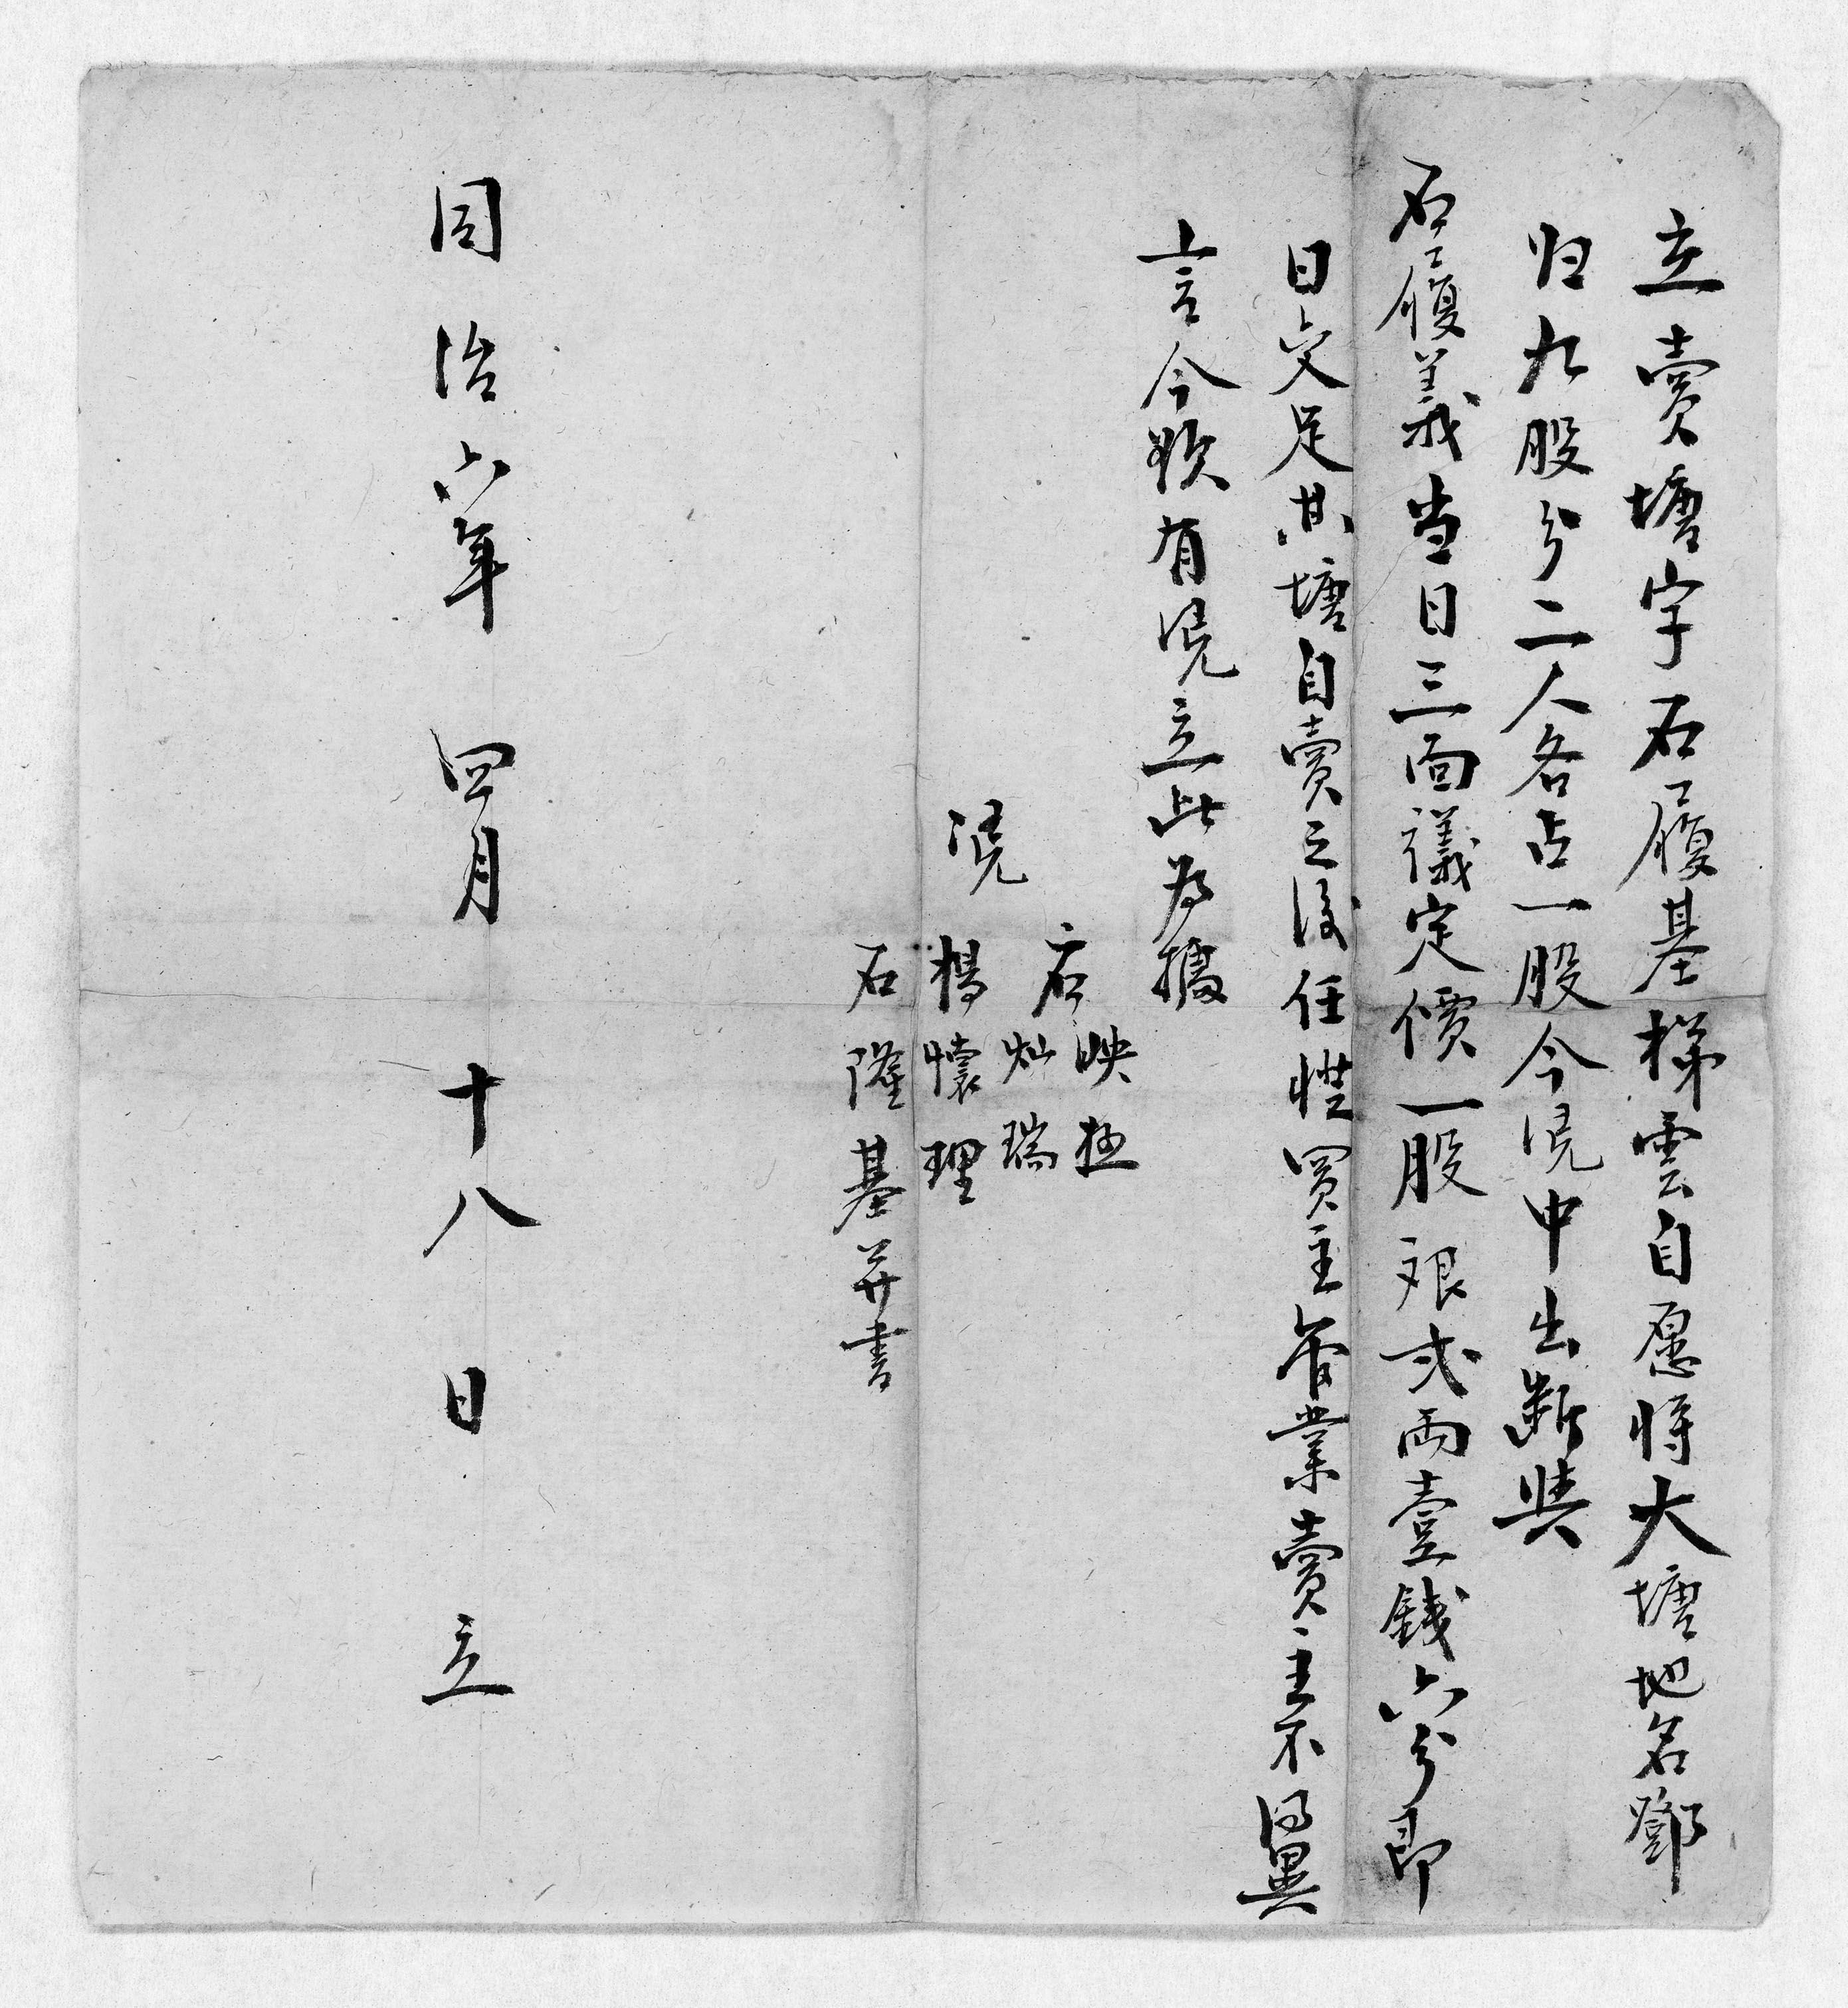 立賣塘字石履基梯雲自愿将大塘地名鄧
归九股分二人各占一股今凴中出断與
石履義当日三面議定價一股艮弍両壹錢六分即
日交足其塘自賣之後任凴買主管業賣主不得異
言今欲有凴立此為據
凴
石映極
灿瑞
楊懷理
石隆基并書
同治六年四月十八日立